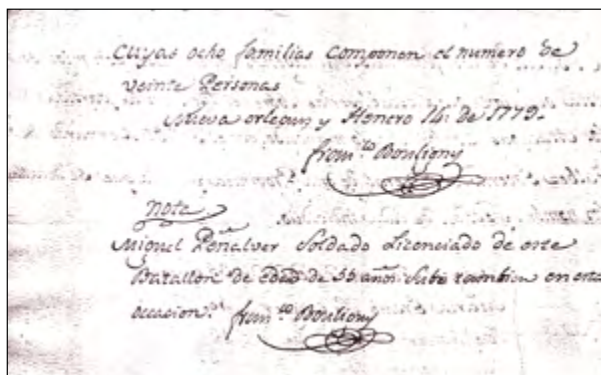 Cuyas ocho familias componen el numero de
veinte Personas
Nueva orleans y Henero 14 de 1779.
fran.co Bouligny
nota
Miguel Peñalver Soldado Licenciado de este
Batallon de edad de 55 años Sube tambien en esta
occasion.
fran.co Bouligny